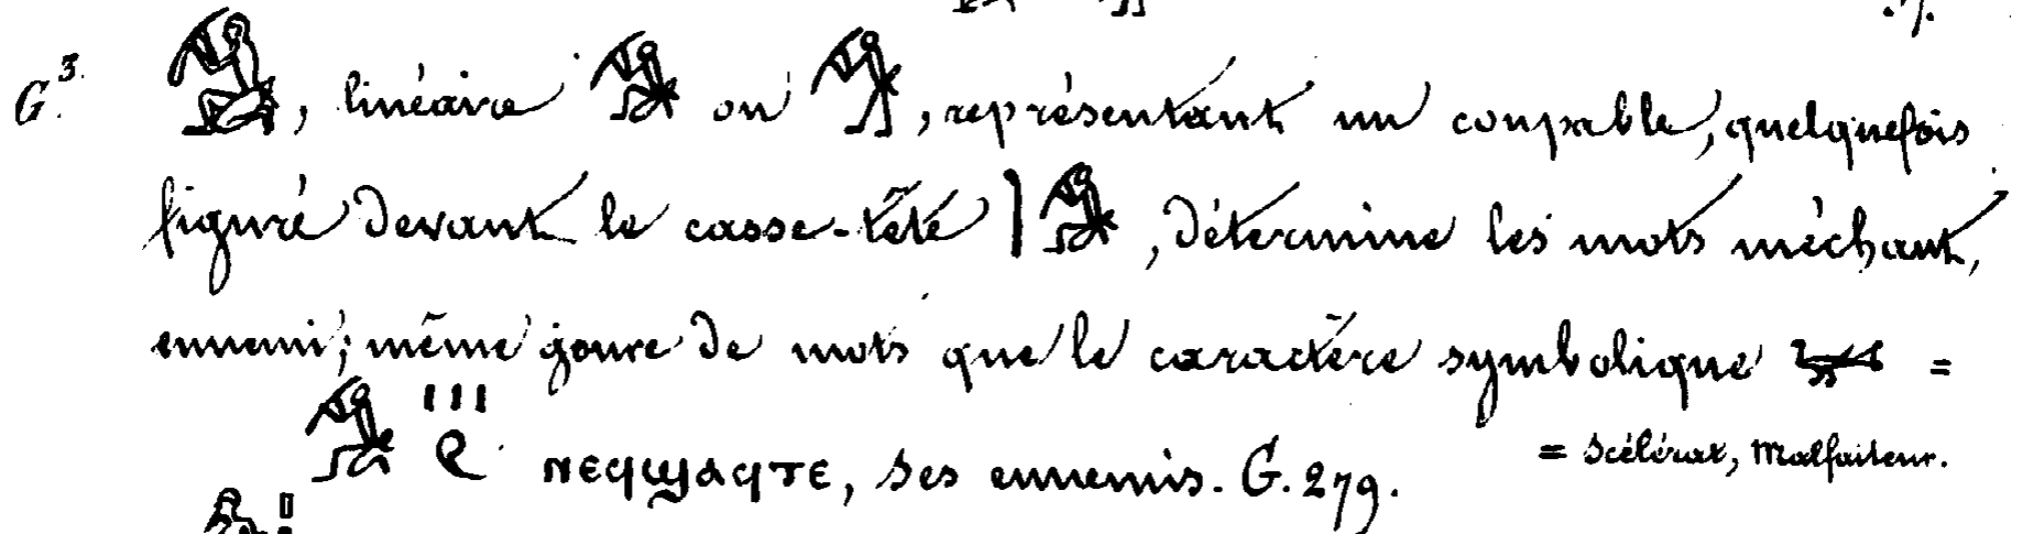 G.³ , linéaire ou , représentant un coupable, quelquefois
figuré devant le casse-tête , détermine les mots méchant,
ennemi; même genre de mots que le caractère symbolique =
= Scélérat, Malfaiteur.
ⲛⲉϥϣⲁϥⲧⲉ, ses ennemis. G. 279.